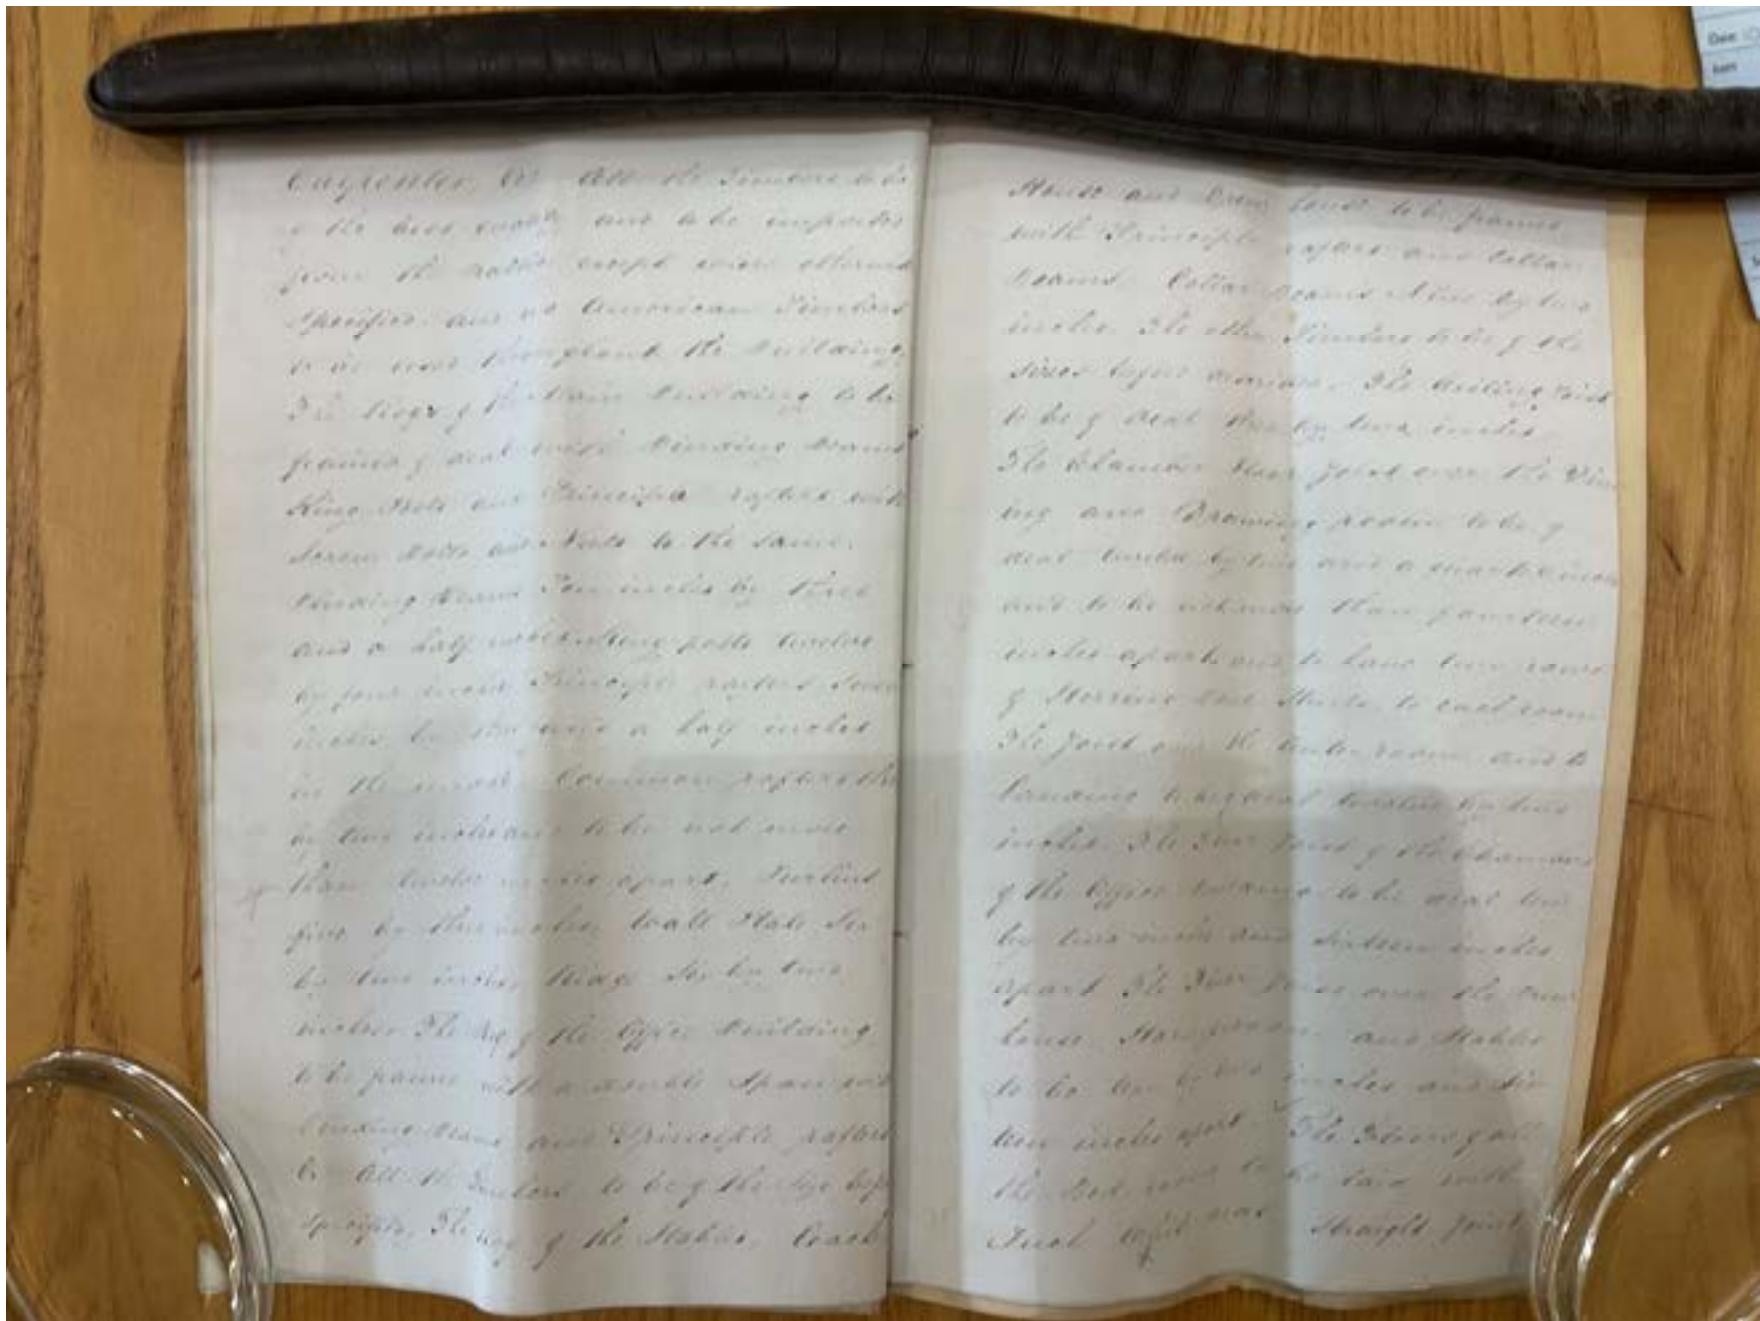 Carpenter &c All the Timbers to be
of the best quality and to be imported
from the Baltic except where otherwise
Specified and no American Timbers
to be used throughout the Building.
The Roof of the Main Building to be
framed of deal with Binding Beams
King Posts and Principle rafters with
Screw Bolts and Nuts to the same.
Binding Beams Ten inches by Three
and a half inches King posts twelve
by four inches Principle rafters Seven
inches by and a half inches
in the Common rafters
by two inches and to be not more
than twelve inches apart, Purlins
five by three inches, Wall Plate Six
by two inches, Ridge Six by two
inches The Roof of the Office Building
to be framed with a double Span with
binding Beams and Principle rafters
&c All the Timbers to be of the size before
specified, The roof of the Stables, Coach
House and Cow house to be framed
with Principle rafters and Collar
Beams. Collar Beams Nine by two
inches. The other Timbers to be of the
sizes before described. The Ceiling Joist
to be of deal three by two inches
The Chamber floor Joist over the Din
ing and Drawing rooms to be of
deal twelve by two and a quarter inches
and to be not more than fourteen
inches apart and to have two rows
of Herring bone Struts to each room
The Joist over the room and to
Landing to be of deal twelve by two
inches. The floor Joist of the Chambers
of the Office Building to be deal
by two inches and Sixteen inches
apart The floor Joist over the Cow
house and Stables
to be by two inches and Six
teen inches apart. The Floors of all
the Bed rooms to be laid with
Inch deal Straight Joint